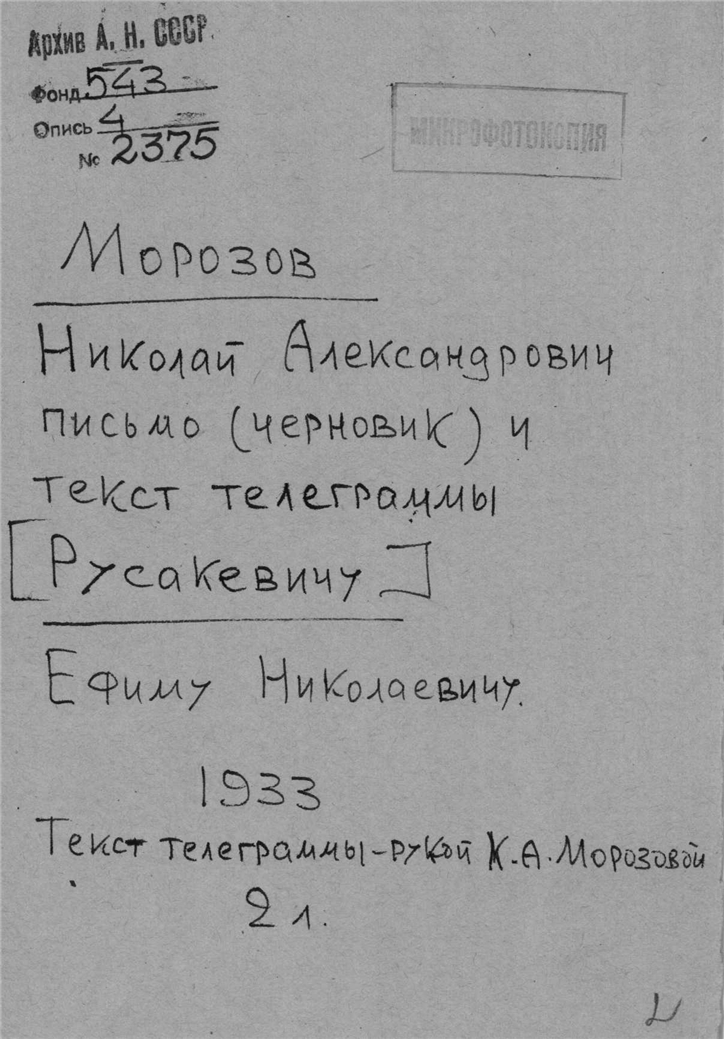 Архив А. Н. СССР.
Фонд 543
Опись 4
№ 2375
МИКРОФОТОКОПИЯ
Морозов
Николай Александрович
письмо (черновик) и
текст телеграммы
[Русакевичу]
Ефиму Николаевичу.
1933
Текст телеграммы-рукой К.А. Морозовой
2 л.